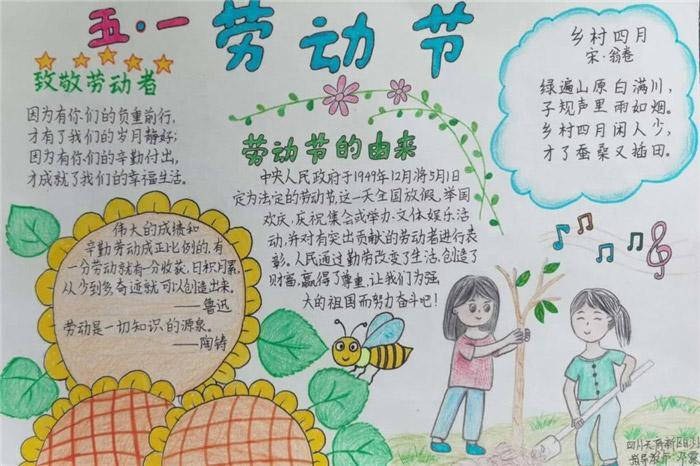 五·一 劳动节
致敬劳动者
因为有你们的负重前行,
才有了我们的岁月静好;
因为有你们的辛勤付出,
才成就了我们的幸福生活。
伟大的成绩和
辛勤劳动成正比例的,有
一分劳动就有一分收获,日积月累,
从少到多,奇迹就可以创造出来。
——鲁迅
劳动是一切知识的源泉。
——陶铸
劳动节的由来
中央人民政府于1949年12月将5月1日
定为法定的劳动节,这一天全国放假,举国
欢庆,庆祝集会或举办文体娱乐活
动,并对有突出贡献的劳动者进行表
彰。人民通过勤劳改变了生活,创造了
财富,赢得了尊重,让我们为强
大的祖国而努力奋斗吧!
乡村四月
宋·翁卷
绿遍山原白满川,
子规声里雨如烟。
乡村四月闲人少,
才了蚕桑又插田。
四川天府新区
指导教师